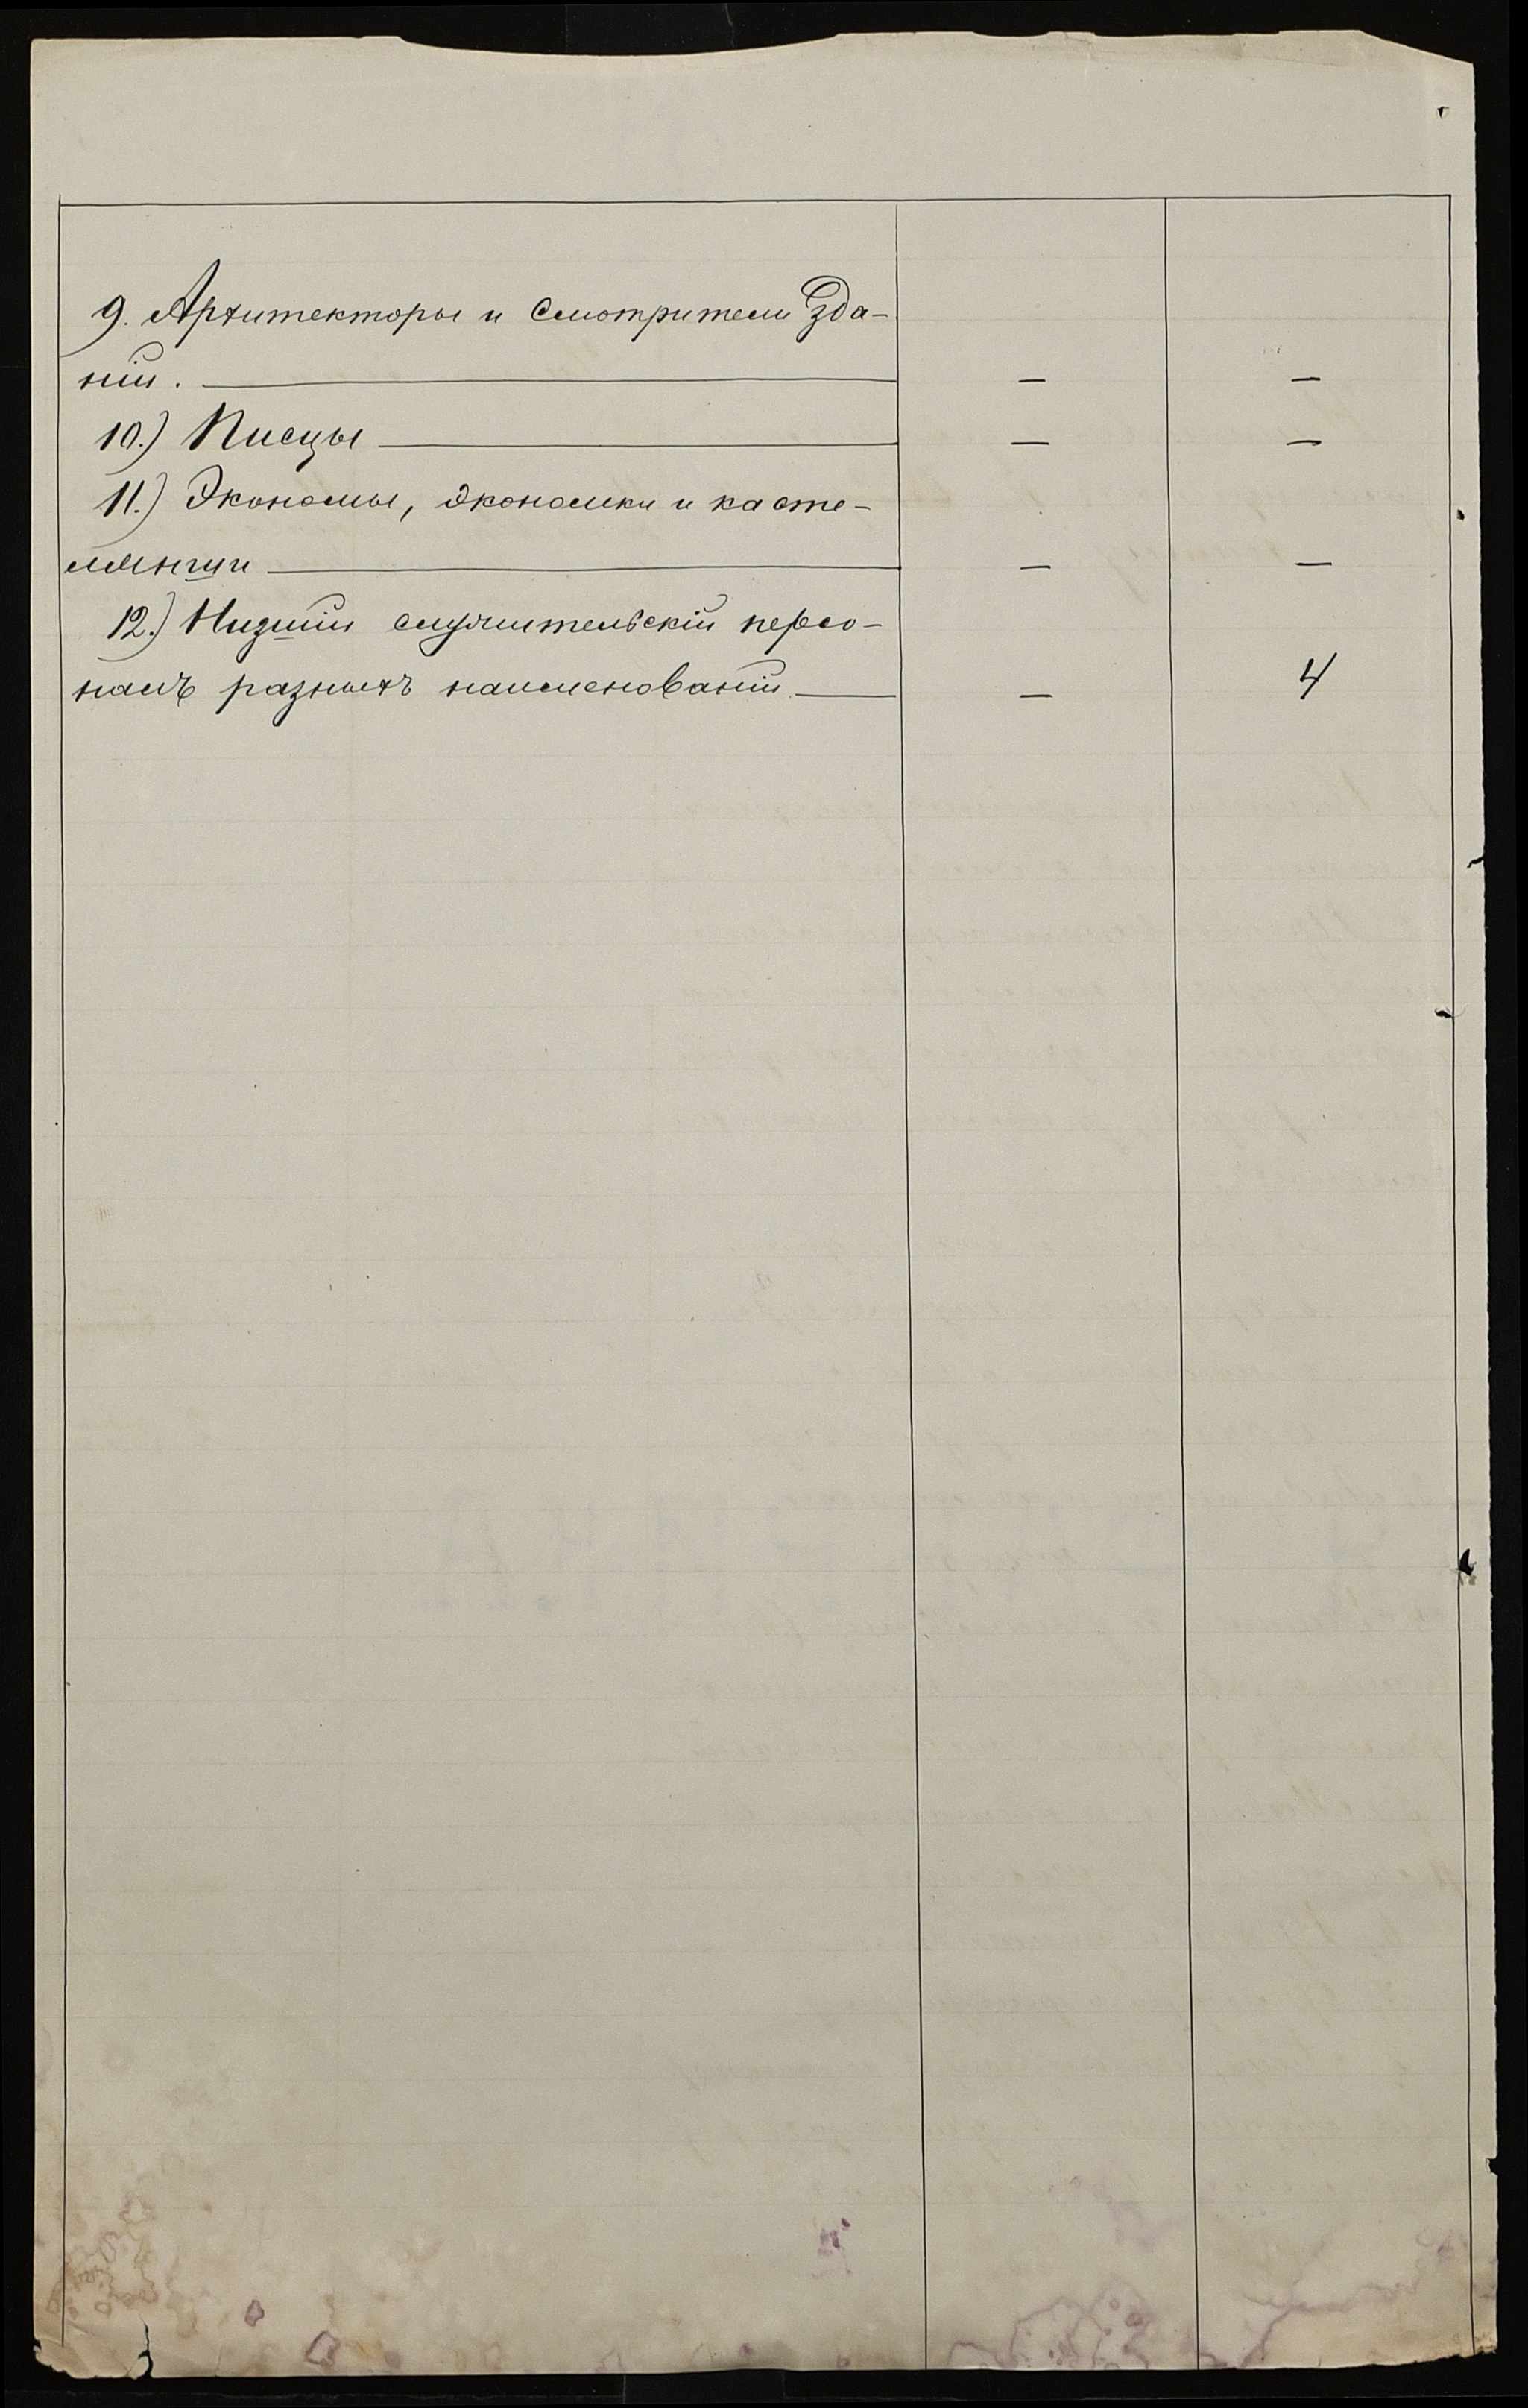 9. Архитекторы и Смотрители Зда-
ній. — —
10.) Писцы — —
11.) Экономы, экономки и касте-
лянши — —
12.) Низшій служительскій персо-
налъ разныхъ наименованій — 4